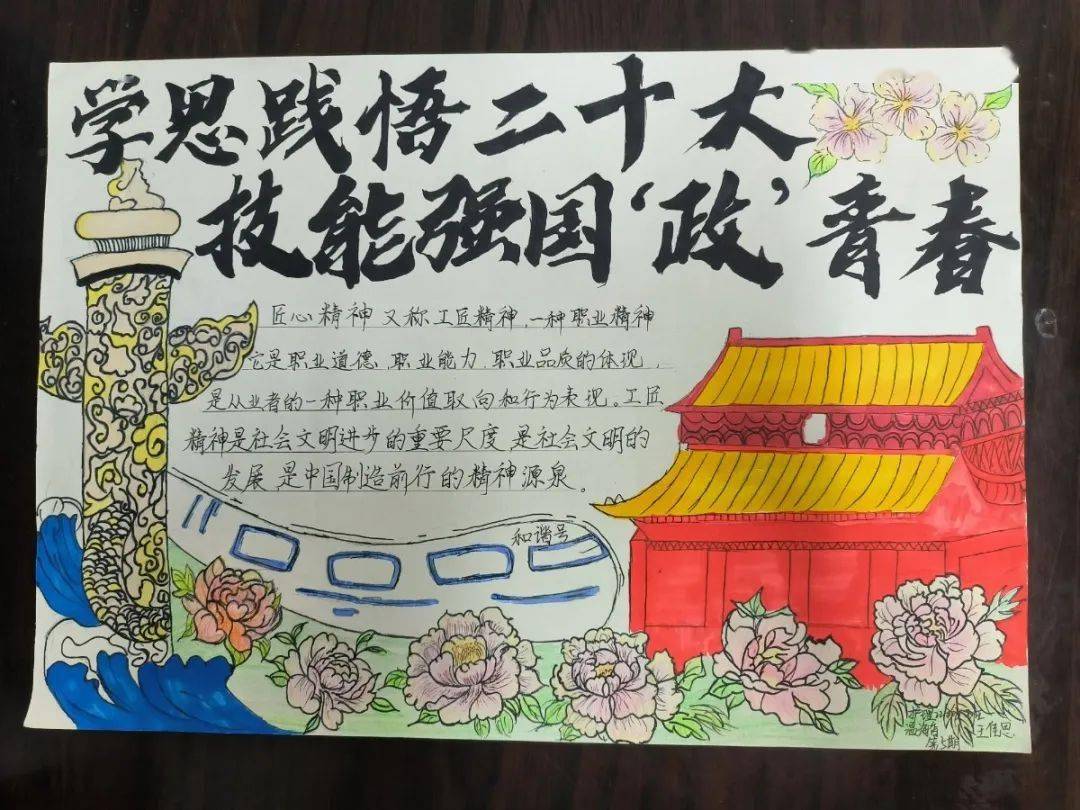 学思践悟二十大
技能强国‘政’青春
匠心精神又称工匠精神,一种职业精神
它是职业道德、职业能力、职业品质的体现,
是从业者的一种职业价值取向和行为表现。工匠
精神是社会文明进步的重要尺度、是社会文明的
发展、是中国制造前行的精神源泉。
和谐号
王佳思
第5期